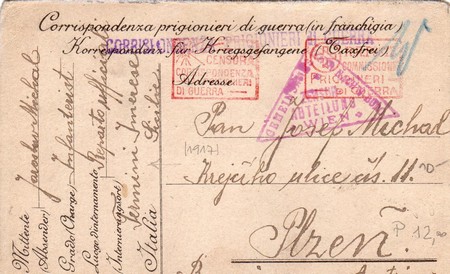 Corrispondenza prigionieri di guerra (in franchigia)
CORRISPONDENZA PRIGIONIERI DI GUERRA
Korrespondenz für Kriegsgefangene (Taxfrei)
CENSURA
CORRISPONDENZA
PRIGIONIERI
DI GUERRA
COMMISSIONE
PRIGIONIERI
DI GUERRA
Adresse
ABTEILUNG
WIEN
Pan Josef Michal
[1917]
Krejčího ulice čís. 11.
10
Plzeň.
P 12,00
Mittente Jaroslav Michal
Absender)
Grado (Charge) Infanterist
Luogo d'internamento Reparto ufficiali
Internierungsort) Termini Imerese
Sicilia
Italia